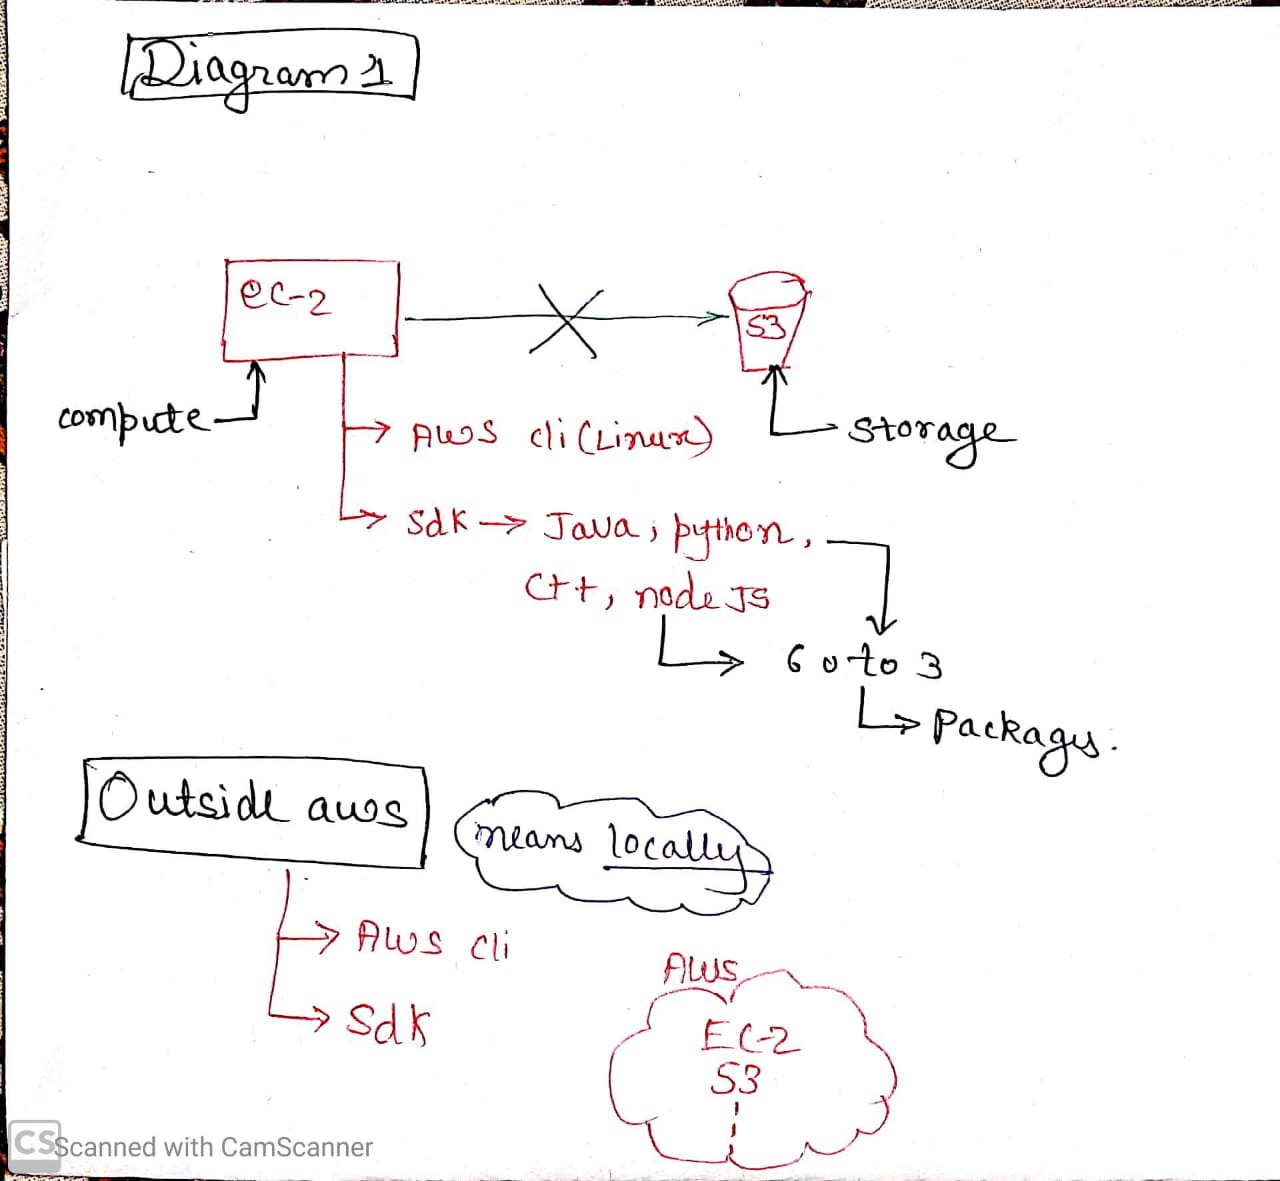 Diagram 1
ec-2
S3
compute
AWS cli (Linux)
storage
sdk → Java, python,
C++, node JS
Boto 3
Packages.
Outside aws
means locally
AWS cli
Sdk
AWS
EC-2
S3
CS Scanned with CamScanner